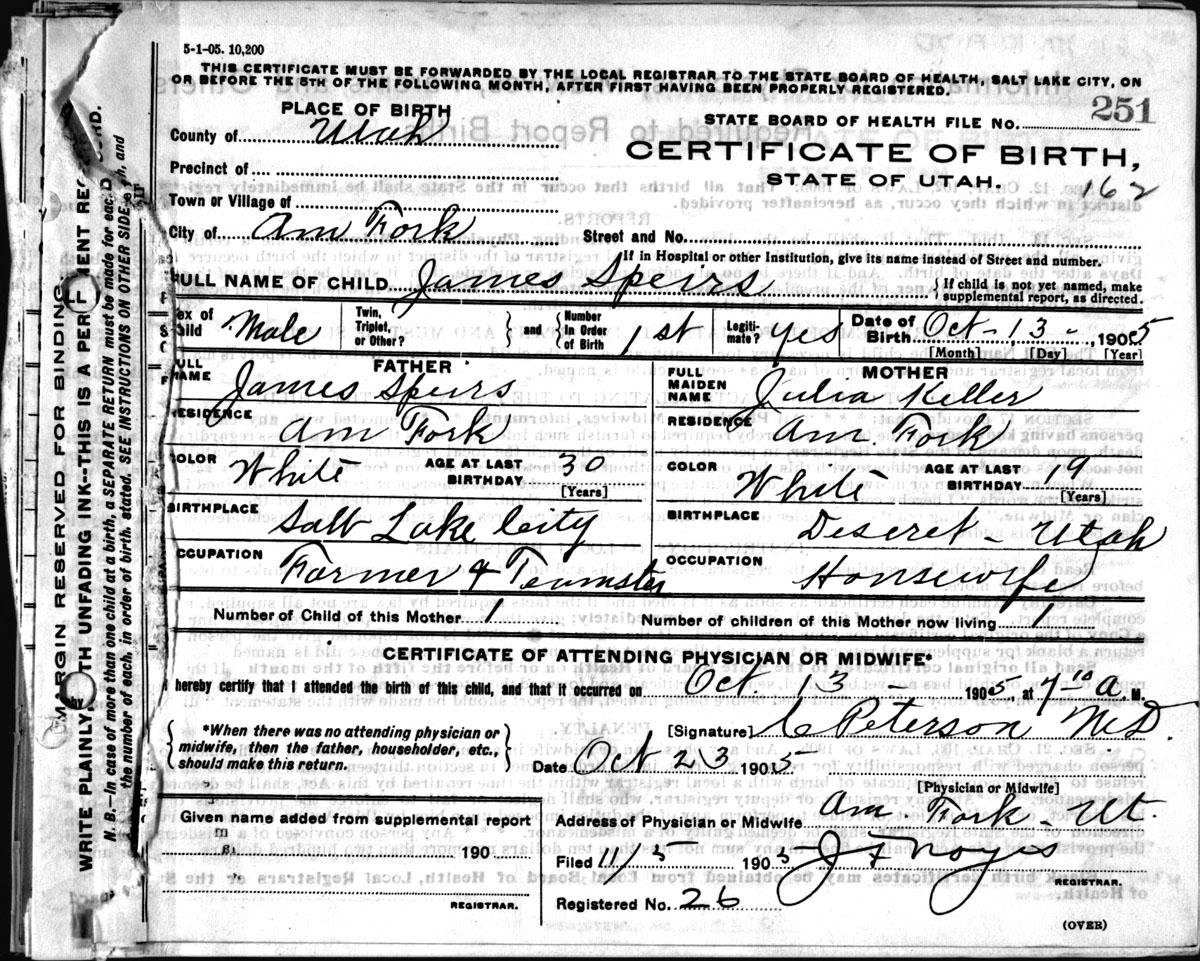 5-1-05. 10,200
THIS CERTIFICATE MUST BE FORWARDED BY THE LOCAL REGISTRAR TO THE STATE BOARD OF HEALTH, SALT LAKE CITY, ON
OR BEFORE THE 5TH OF THE FOLLOWING MONTH, AFTER FIRST HAVING BEEN PROPERLY REGISTERED.
PLACE OF BIRTH
STATE BOARD OF HEALTH FILE No. 251
County of Utah
CERTIFICATE OF BIRTH,
Precinct of
STATE OF UTAH.
162
Town or Village of
City of Am Fork Street and No.
If in Hospital or other Institution, give its name instead of Street and number.
FULL NAME OF CHILD James Speirs { If child is not yet named, make
supplemental report, as directed.
Sex of
Child Male Twin,
Triplet,
or Other? } and { Number
in Order
of Birth 1st Legiti-
mate? yes Date of
Birth Oct - 13 -, 1905
[Month] [Day] [Year]
FATHER
FULL
NAME James Speirs
RESIDENCE
Am Fork
COLOR White AGE AT LAST
BIRTHDAY 30
[Years]
BIRTHPLACE
Salt Lake City
OCCUPATION
Farmer & Teamster
MOTHER
FULL
MAIDEN
NAME Julia Keller
RESIDENCE Am Fork
COLOR White AGE AT LAST
BIRTHDAY 19
[Years]
BIRTHPLACE Deseret - Utah
OCCUPATION
Housewife
Number of Child of this Mother 1 Number of children of this Mother now living 1
CERTIFICATE OF ATTENDING PHYSICIAN OR MIDWIFE*
I hereby certify that I attended the birth of this child, and that it occurred on Oct. 13 - 1905, at 4 10 a. M.
{ *When there was no attending physician or
midwife, then the father, householder, etc.,
should make this return. }
[Signature] C Peterson M.D.
Date Oct 23 1905
[Physician or Midwife]
Given name added from supplemental report
190
REGISTRAR.
Address of Physician or Midwife Am. Fork - Ut.
Filed 11/5 1905 J F Noyes
REGISTRAR.
Registered No. 26
(OVER)
MARGIN RESERVED FOR BINDING
WRITE PLAINLY WITH UNFADING INK--THIS IS A PERMANENT RECORD.
N. B.--In case of more than one child at a birth, a SEPARATE RETURN must be made for each, and
the number of each, in order of birth, stated. SEE INSTRUCTIONS ON OTHER SIDE